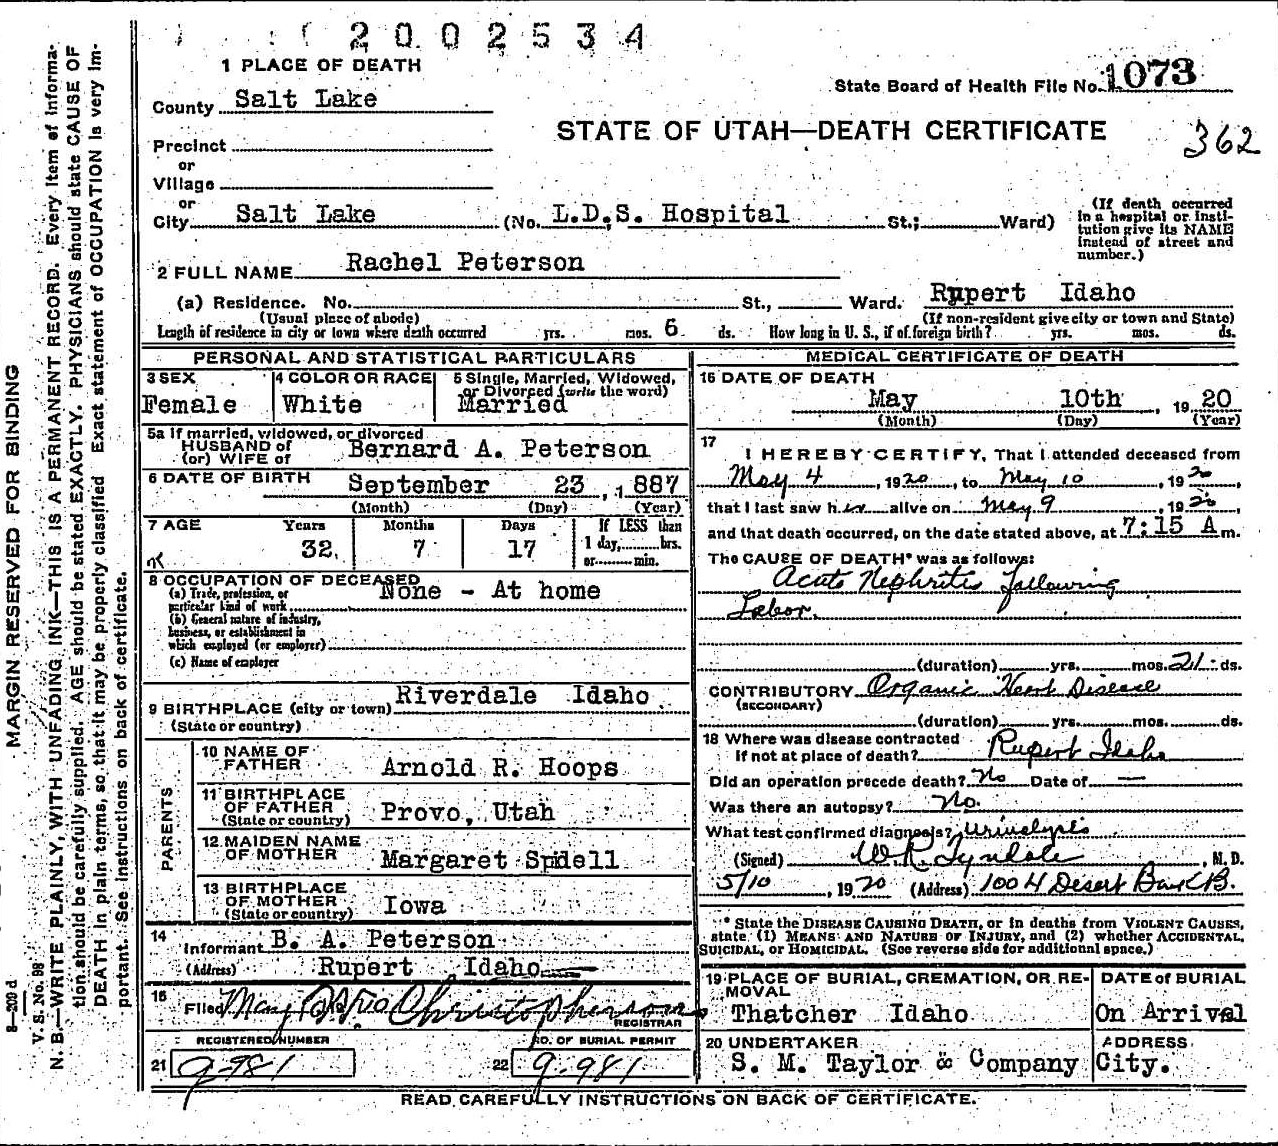 2002534
1 PLACE OF DEATH
State Board of Health File No. 1073
County Salt Lake
STATE OF UTAH—DEATH CERTIFICATE
362
Precinct
or
Village
or
City Salt Lake (No. L.D.S. Hospital St.; Ward)
(If death occurred
in a hospital or insti-
tution give its NAME
instead of street and
number.)
2 FULL NAME Rachel Peterson
(a) Residence. No. St., Ward. Rupert Idaho
(Usual place of abode) (If non-resident give city or town and State)
Length of residence in city or town where death occurred yrs. mos. 6 ds. How long in U. S., if of foreign birth? yrs. mos. ds.
PERSONAL AND STATISTICAL PARTICULARS
3 SEX
Female
4 COLOR OR RACE
White
5 Single, Married, Widowed,
or Divorced (write the word)
Married
5a If married, widowed, or divorced
HUSBAND of
(or) WIFE of Bernard A. Peterson
6 DATE OF BIRTH September 23, 1887
(Month) (Day) (Year)
7 AGE Years Months Days If LESS than
32 7 17 1 day,......hrs.
or......min.
8 OCCUPATION OF DECEASED
None - At home
(a) Trade, profession, or
particular kind of work
(b) General nature of industry,
business, or establishment in
which employed (or employer)
(c) Name of employer
9 BIRTHPLACE (city or town) Riverdale Idaho
(State or country)
PARENTS
10 NAME OF
FATHER Arnold R. Hoops
11 BIRTHPLACE
OF FATHER
(State or country) Provo, Utah
12 MAIDEN NAME
OF MOTHER Margaret Spdell
13 BIRTHPLACE
OF MOTHER
(State or country) Iowa
14
Informant B. A. Peterson
(Address) Rupert, Idaho
15
Filed May Christopherson
REGISTRAR
REGISTERED NUMBER
21 9-981
NO. OF BURIAL PERMIT
22 9-981
MEDICAL CERTIFICATE OF DEATH
16 DATE OF DEATH
May 10th, 1920
(Month) (Day) (Year)
17
I HEREBY CERTIFY, That I attended deceased from
May 4, 1920, to May 10, 1920,
that I last saw her alive on May 9, 1920,
and that death occurred, on the date stated above, at 7:15 A m.
The CAUSE OF DEATH* was as follows:
Acute Nephritis following
Labor.
(duration) yrs. mos. 21 ds.
CONTRIBUTORY Organic Heart Disease
(SECONDARY)
(duration) yrs. mos. ds.
18 Where was disease contracted
if not at place of death? Rupert Idaho
Did an operation precede death? No Date of —
Was there an autopsy? No.
What test confirmed diagnosis? Urinalysis
(Signed) W. R. Tyndale, M. D.
5/10, 1920 (Address) 1004 Desert Bank B.
* State the DISEASE CAUSING DEATH, or in deaths from VIOLENT CAUSES,
state (1) MEANS AND NATURE OF INJURY, and (2) whether ACCIDENTAL,
SUICIDAL, or HOMICIDAL. (See reverse side for additional space.)
19 PLACE OF BURIAL, CREMATION, OR RE-
MOVAL
Thatcher Idaho
DATE of BURIAL
On Arrival
20 UNDERTAKER
S. M. Taylor & Company
ADDRESS
City.
READ CAREFULLY INSTRUCTIONS ON BACK OF CERTIFICATE.
MARGIN RESERVED FOR BINDING
8—209 d
V. S. No. 98
N. B.—WRITE PLAINLY, WITH UNFADING INK—THIS IS A PERMANENT RECORD. Every item of informa-
tion should be carefully supplied. AGE should be stated EXACTLY. PHYSICIANS should state CAUSE OF
DEATH in plain terms, so that it may be properly classified. Exact statement of OCCUPATION is very im-
portant. See instructions on back of certificate.